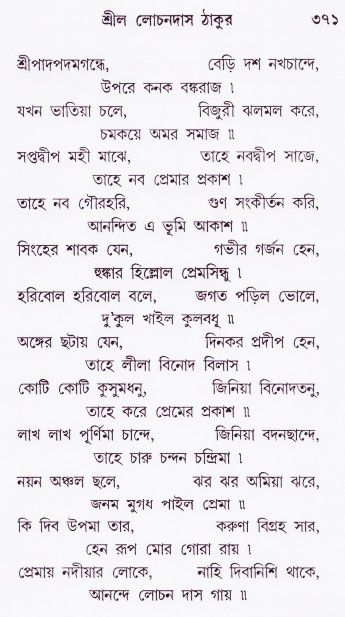 শ্রীল লোচনদাস ঠাকুর ৩৭১
শ্রীপাদপদমগন্ধে, বেড়ি দশ নখচান্দে,
উপরে কনক বঙ্করাজ ৷
যখন ভাতিয়া চলে, বিজুরী ঝলমল করে,
চমকয়ে অমর সমাজ ৷৷
সপ্তদ্বীপ মহী মাঝে, তাহে নবদ্বীপ সাজে,
তাহে নব প্রেমার প্রকাশ ৷
তাহে নব গৌরহরি, গুণ সংকীর্তন করি,
আনন্দিত এ ভূমি আকাশ ৷৷
সিংহের শাবক যেন, গভীর গর্জন হেন,
হুঙ্কার হিল্লোল প্রেমসিন্ধু ৷
হরিবোল হরিবোল বলে, জগত পড়িল ভোলে,
দু'কুল খাইল কুলবধূ ৷৷
অঙ্গের ছটায় যেন, দিনকর প্রদীপ হেন,
তাহে লীলা বিনোদ বিলাস ৷
কোটি কোটি কুসুমধনু, জিনিয়া বিনোদতনু,
তাহে করে প্রেমের প্রকাশ ৷৷
লাখ লাখ পূর্ণিমা চান্দে, জিনিয়া বদনছান্দে,
তাহে চারু চন্দন চন্দ্রিমা ৷
নয়ন অঞ্চল ছলে, ঝর ঝর অমিয়া ঝরে,
জনম মুগধ পাইল প্রেমা ৷৷
কি দিব উপমা তার, করুণা বিগ্রহ সার,
হেন রূপ মোর গোরা রায় ৷
প্রেমায় নদীয়ার লোকে, নাহি দিবানিশি থাকে,
আনন্দে লোচন দাস গায় ৷৷